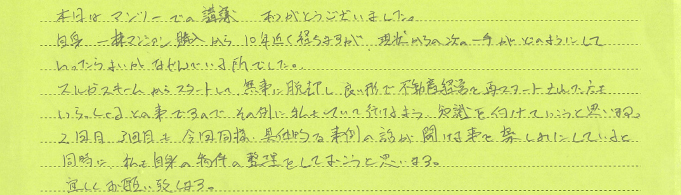 本日はマンツーでの講義 ありがとうございました。
自身 一棟マンション購入から10年近く経ちますが、現状からの次の一手がどのようにして
いったらよいかなやんでいる所でした。
スルガスキームからスタートして、無事に脱却し、良い形で不動産経営を再スタートされた方も
いらっしゃるとの事ですので その例に私もついて行けるよう 知識を付けていこうと思います。
2回目、3回目も 今回同様 具体的な事例の話が聞ける事を楽しみにしていると
同時に、私も自身の物件の整理をしておこうと思います。
宜しくお願い致します。